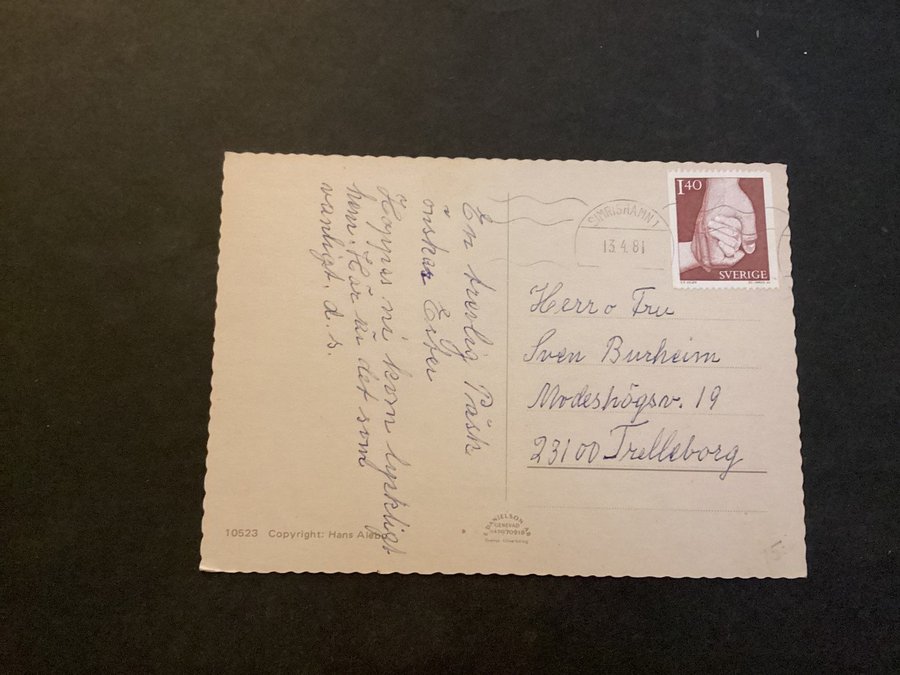 En trevlig Påsk
önskar Ester
Hoppas ni kom lyckligt
hem. Här är det som
vanligt. d. s.
SIMRISHAMN 1
13.4.81
1 40
SVERIGE
Herr o Fru
Sven Burheim
Modeshögsv. 19
23100 Trelleborg
10523 Copyright: Hans Alebo
DANIELSON AB
GENEVAD